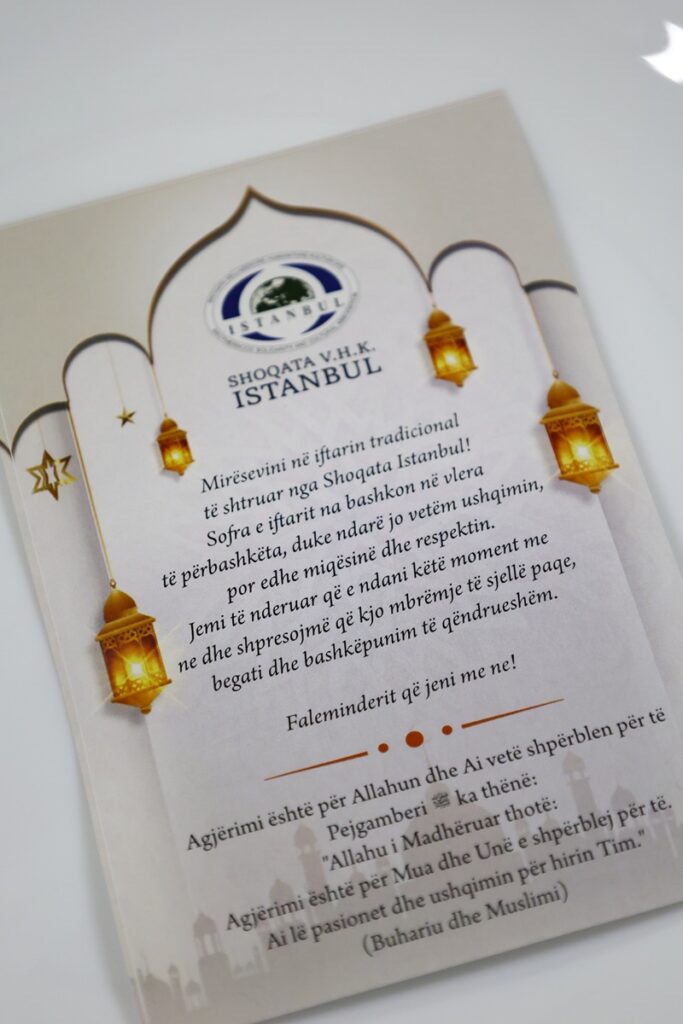 ISTANBUL
SHOQATA V.H.K.
ISTANBUL
Mirësevini në iftarin tradicional
të shtruar nga Shoqata Istanbul!
Sofra e iftarit na bashkon në vlera
të përbashkëta, duke ndarë jo vetëm ushqimin,
por edhe miqësinë dhe respektin.
Jemi të nderuar që e ndani këtë moment me
ne dhe shpresojmë që kjo mbrëmje të sjellë paqe,
begati dhe bashkëpunim të qëndrueshëm.
Faleminderit që jeni me ne!
Agjërimi është për Allahun dhe Ai vetë shpërblen për të
Pejgamberi ﷺ ka thënë:
"Allahu i Madhëruar thotë:
Agjërimi është për Mua dhe Unë e shpërblej për të.
Ai lë pasionet dhe ushqimin për hirin Tim."
(Buhariu dhe Muslimi)